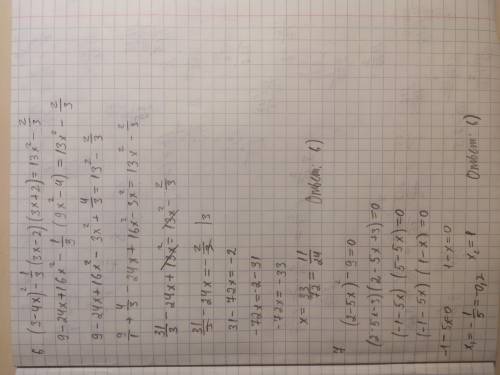 6 (3-4x)² - 1/3 (3x-2)(3x+2) = 13x² - 2/3
9-24x+16x² - 1/3 (9x²-4) = 13x² - 2/3
9-24x+16x² - 3x² + 4/3 = 13² - 2/3
9/1 + 4/3 - 24x + 16x² - 3x² = 13x² - 2/3
31/3 - 24x + 13x² = 13x² - 2/3
31/3 - 24x = - 2/3 |3
31 - 72x = -2
-72x = -2-31
-72x = -33
x = 33/72 = 11/24 Ответ: б)
7 (2-5x)² - 9 = 0
(2-5x-3)(2-5x+3) = 0
(-1-5x)(5-5x) = 0
(-1-5x)(1-x) = 0
-1-5x=0 1-x=0
x₁ = - 1/5 = -0,2 x₂ = 1 Ответ: б)